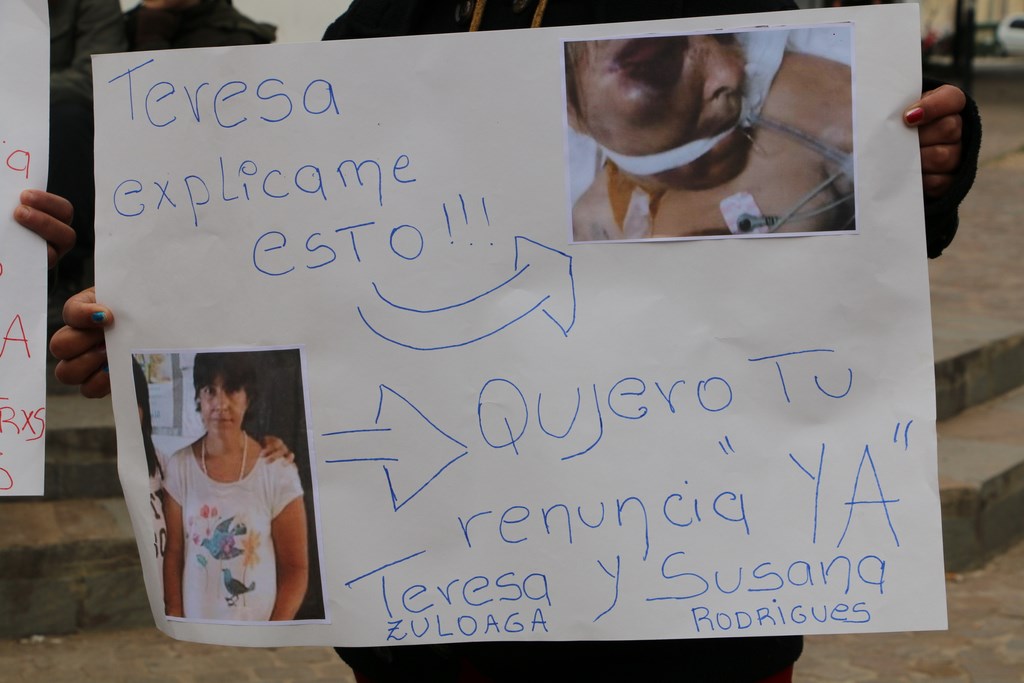 Teresa
explicame
esto!!!
Qujero Tu
renuncia "YA"
Teresa y Susana
ZULOAGA RODRIGUES
a
A
RXS